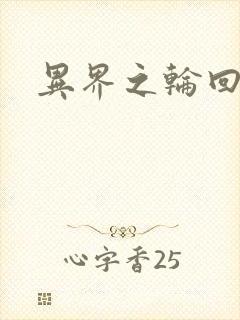 異界之輪回
心字香25